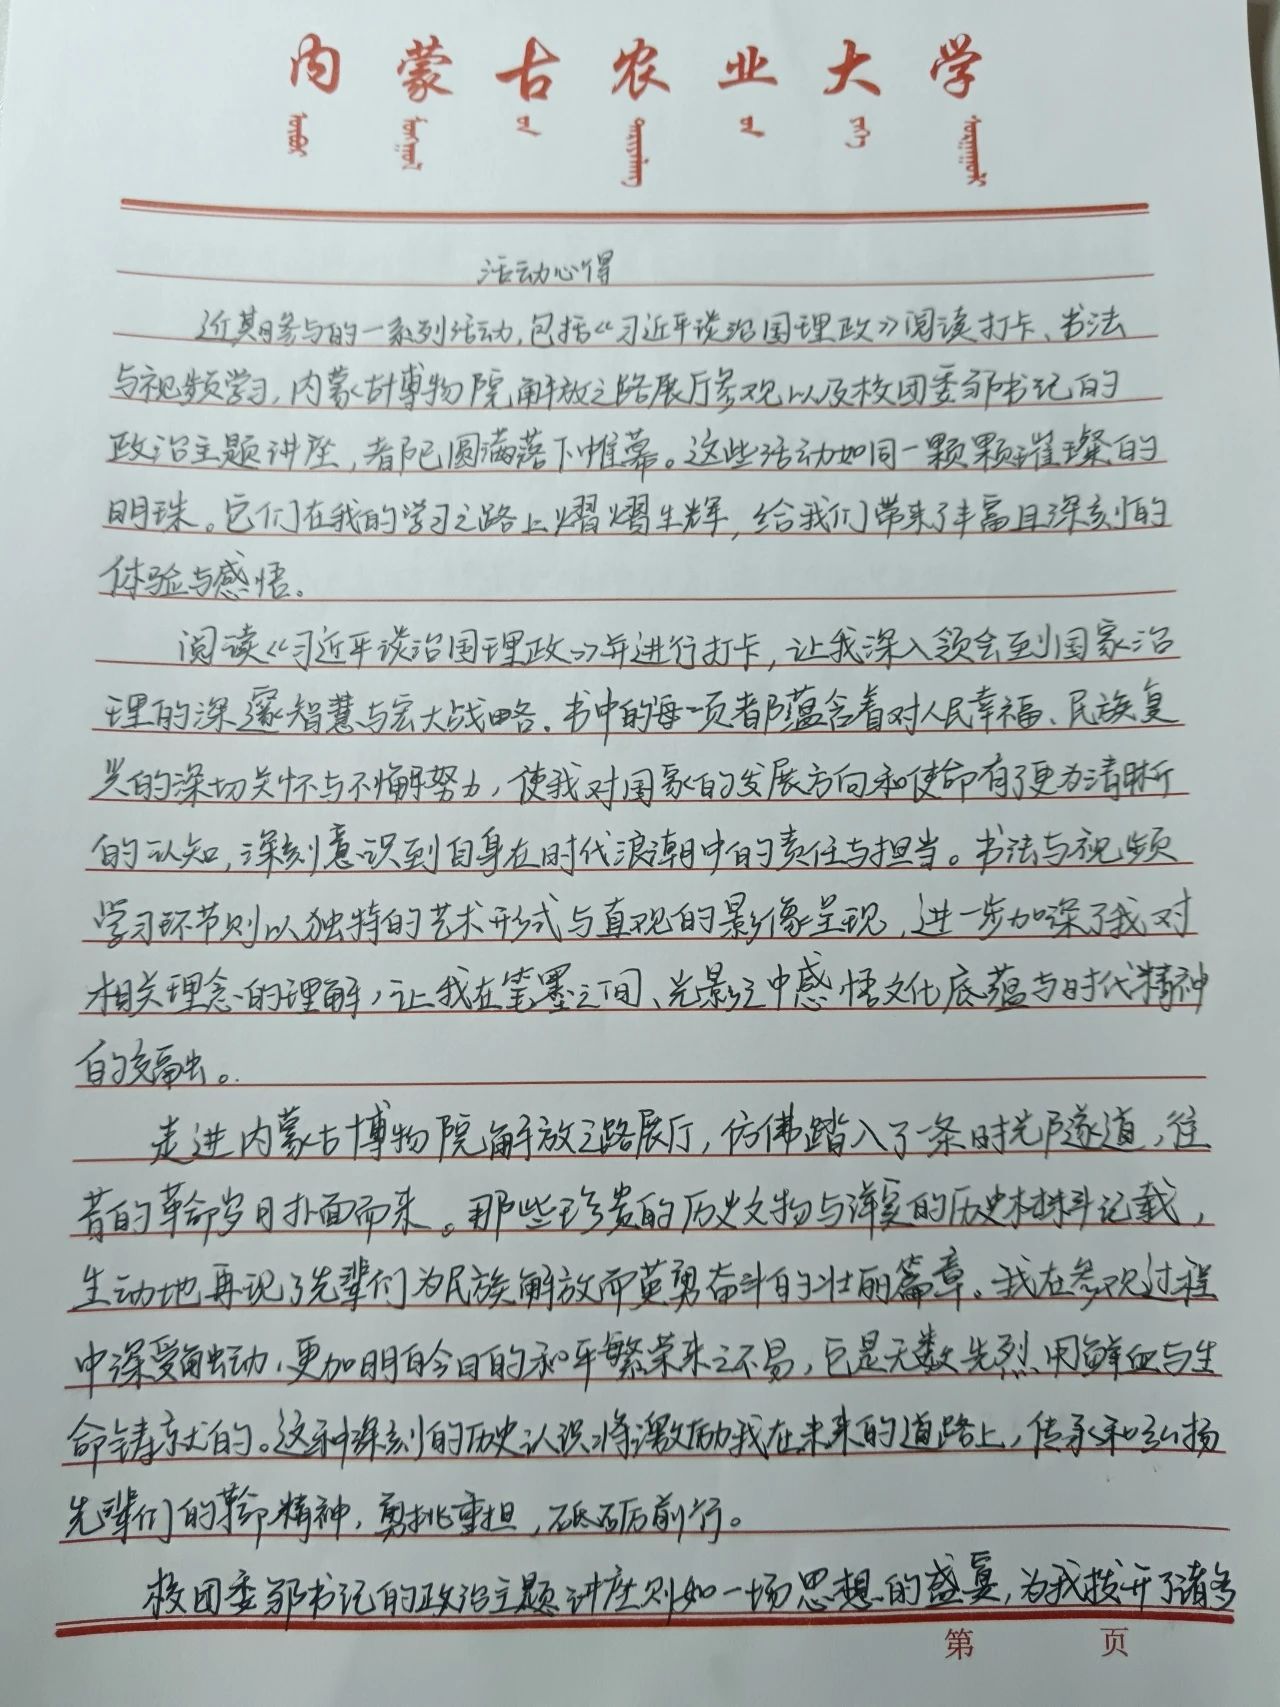 内蒙古农业大学
活动心得
近期参与的一系列活动,包括《习近平谈治国理政》阅读打卡、书法
与视频学习,内蒙古博物院解放之路展厅参观以及校团委邹书记的
政治主题讲座,都已圆满落下帷幕。这些活动如同一颗颗璀璨的
明珠。它们在我的学习之路上熠熠生辉,给我们带来了丰富且深刻的
体验与感悟。
阅读《习近平谈治国理政》并进行打卡,让我深入领会到国家治
理的深邃智慧与宏大战略。书中的每一页都蕴含着对人民幸福、民族复
兴的深切关怀与不懈努力,使我对国家的发展方向和使命有了更为清晰
的认知,深刻意识到自身在时代浪潮中的责任与担当。书法与视频
学习环节则以独特的艺术形式与直观的影像呈现,进一步加深了我对
相关理念的理解,让我在笔墨之间、光影之中感悟文化底蕴与时代精神
的交融。
走进内蒙古博物院解放之路展厅,仿佛踏入了一条时光隧道,往
昔的革命岁月扑面而来。那些珍贵的历史文物与详实的历史材料记载,
生动地再现了先辈们为民族解放而英勇奋斗的壮丽篇章。我在参观过程
中深受触动,更加明白今日的和平繁荣来之不易,它是无数先烈用鲜血与生
命铸就的。这种深刻的历史认识将激励我在未来的道路上,传承和弘扬
先辈们的革命精神,勇挑重担,砥砺前行。
校团委邹书记的政治主题讲座则如一场思想的盛宴,为我拨开了诸多
第 页